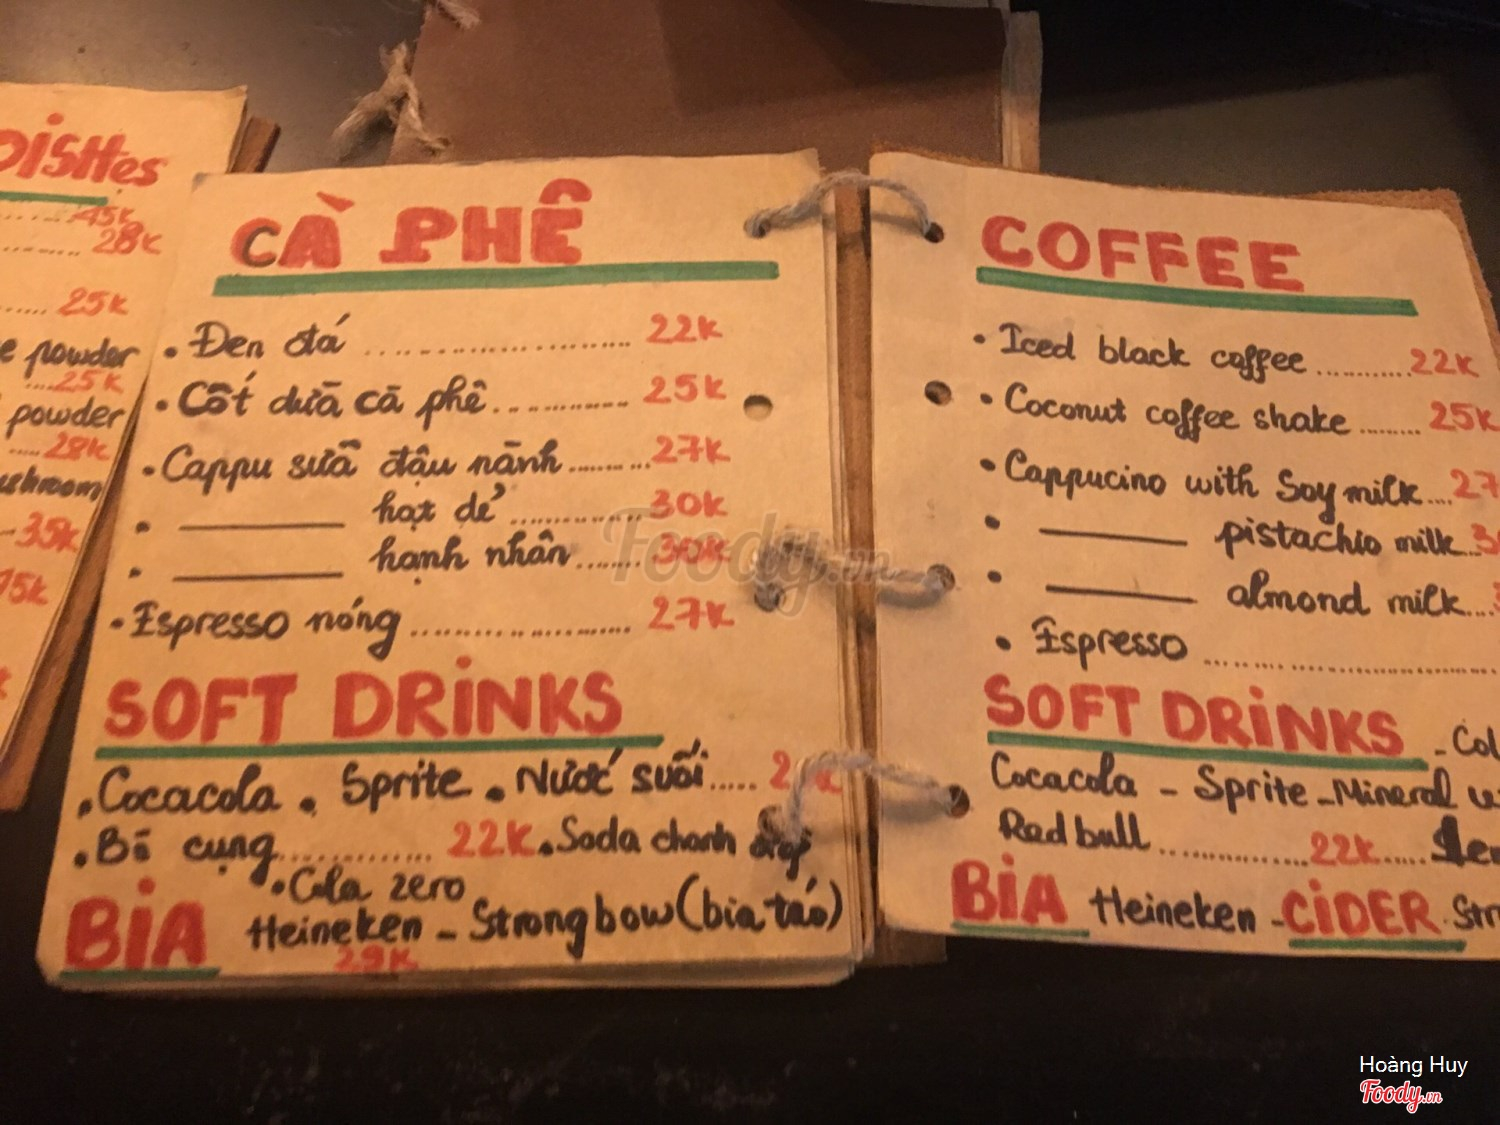 DISHes
45k
28k
25k
powder
25k
powder
28k
35k
CÀ PHÊ
• Đen đá ........................ 22K
• Cốt dừa cà phê ............... 25K
• Cappu sữa đậu nành .......... 27K
• ________ hạt dẻ ............... 30K
• ________ hạnh nhân ........ 30K
• Espresso nóng ........................ 27K
SOFT DRINKS
• Cocacola • Sprite • Nước suối .....
• Bò cụng .............. 22K • Soda chanh
• Cola zero
BIA Heineken - Strongbow (bia táo)
29K
COFFEE
• Iced black coffee ........... 22K
• Coconut coffee shake ......... 25K
• Cappucino with Soy milk ... 27
• ________ pistachio milk ...
• ________ almond milk ....
• Espresso ........................
SOFT DRINKS - Col
Cocacola - Sprite - Mineral
Red bull ................ 22K .....
BIA Heineken - CIDER Str
Foody.vn
Hoàng Huy
Foody.vn